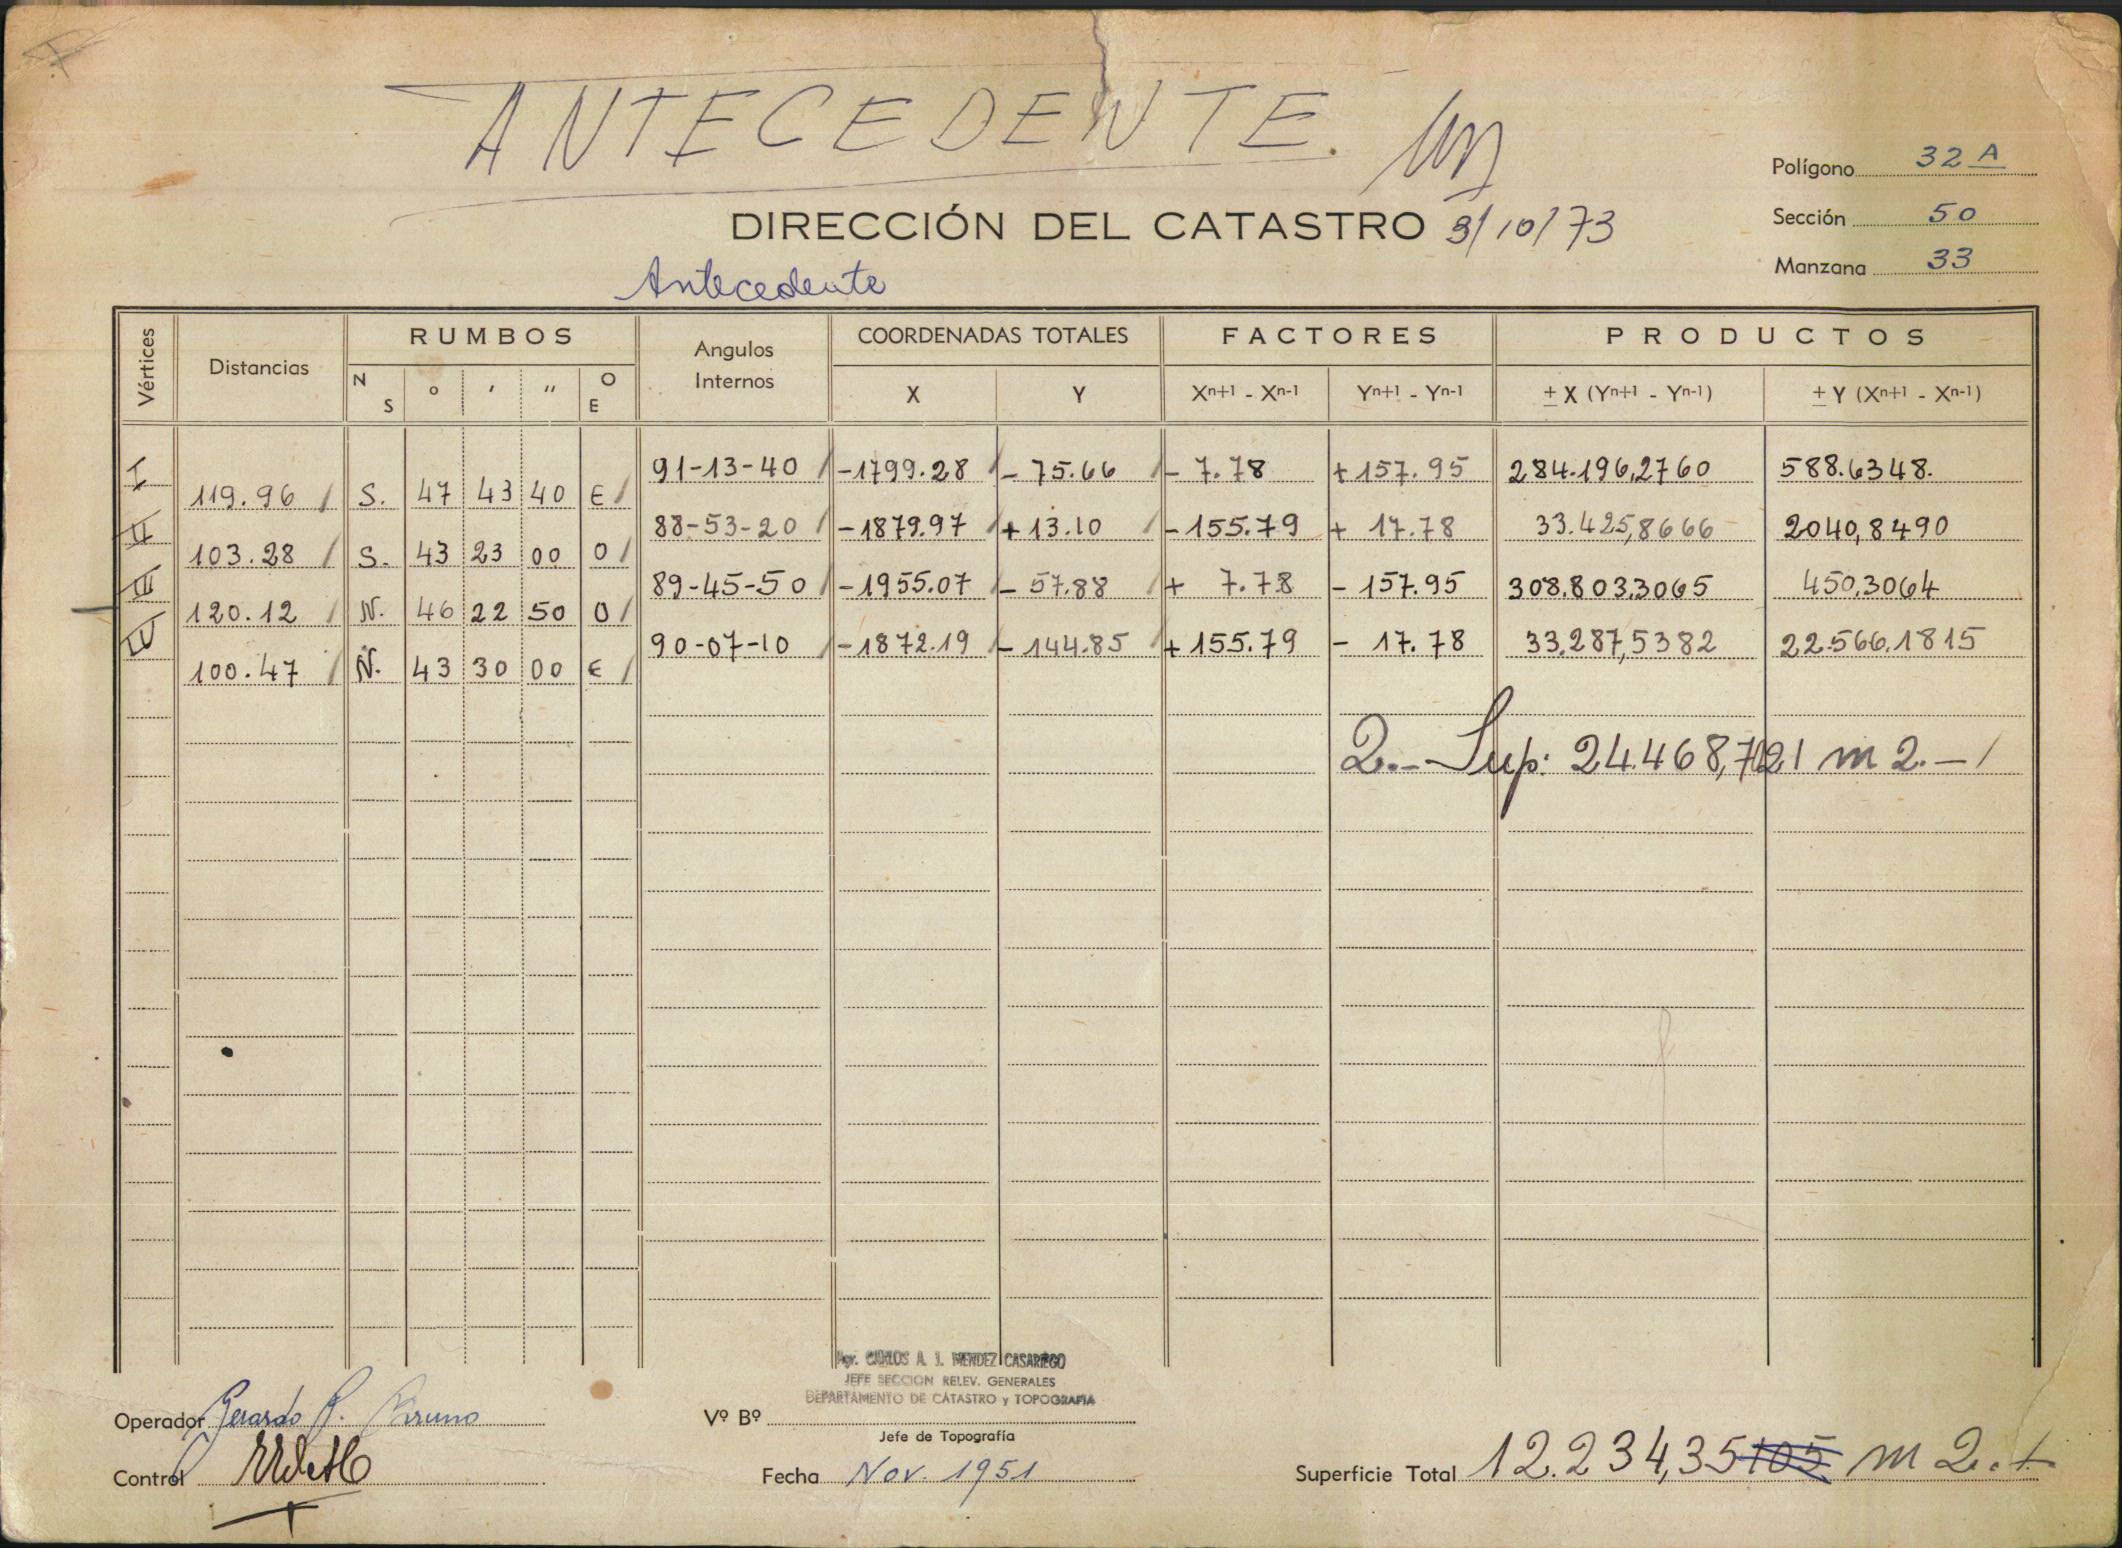 ANTECEDENTE.
Polígono 32 A
Sección 50
Manzana 33
DIRECCIÓN DEL CATASTRO 3/10/73
Antecedente
Vértices Distancias RUMBOS Angulos Internos COORDENADAS TOTALES FACTORES PRODUCTOS
N S ° ' " O E X Y Xn+1 - Xn-1 Yn+1 - Yn-1 ± X (Yn+1 - Yn-1) ± Y (Xn+1 - Xn-1)
I 91-13-40 -1799.28 - 75.66 - 7.78 +157.95 284.196,2760 588.6348.
119.96 S. 47 43 40 E
II 88-53-20 -1879.97 +13.10 -155.79 + 17.78 33.425,8666 2040,8490
103.28 S. 43 23 00 O
III 89-45-50 -1955.07 - 57.88 + 7.78 - 157.95 308.803,3065 450,3064
120.12 N. 46 22 50 O
IV 90-07-10 -1872.19 - 144.85 +155.79 - 17.78 33.287,5382 22.566,1815
100.47 N. 43 30 00 E
2.- Sup: 24.468,7021 m 2.-
Agr. CARLOS A. J. MENDEZ CASARIEGO
JEFE SECCION RELEV. GENERALES
DEPARTAMENTO DE CATASTRO y TOPOGRAFIA
Operador Gerardo P. Bruno
Vº Bº
Jefe de Topografía
Control
Fecha Nov. 1951
Superficie Total 12.234,35105 m 2.